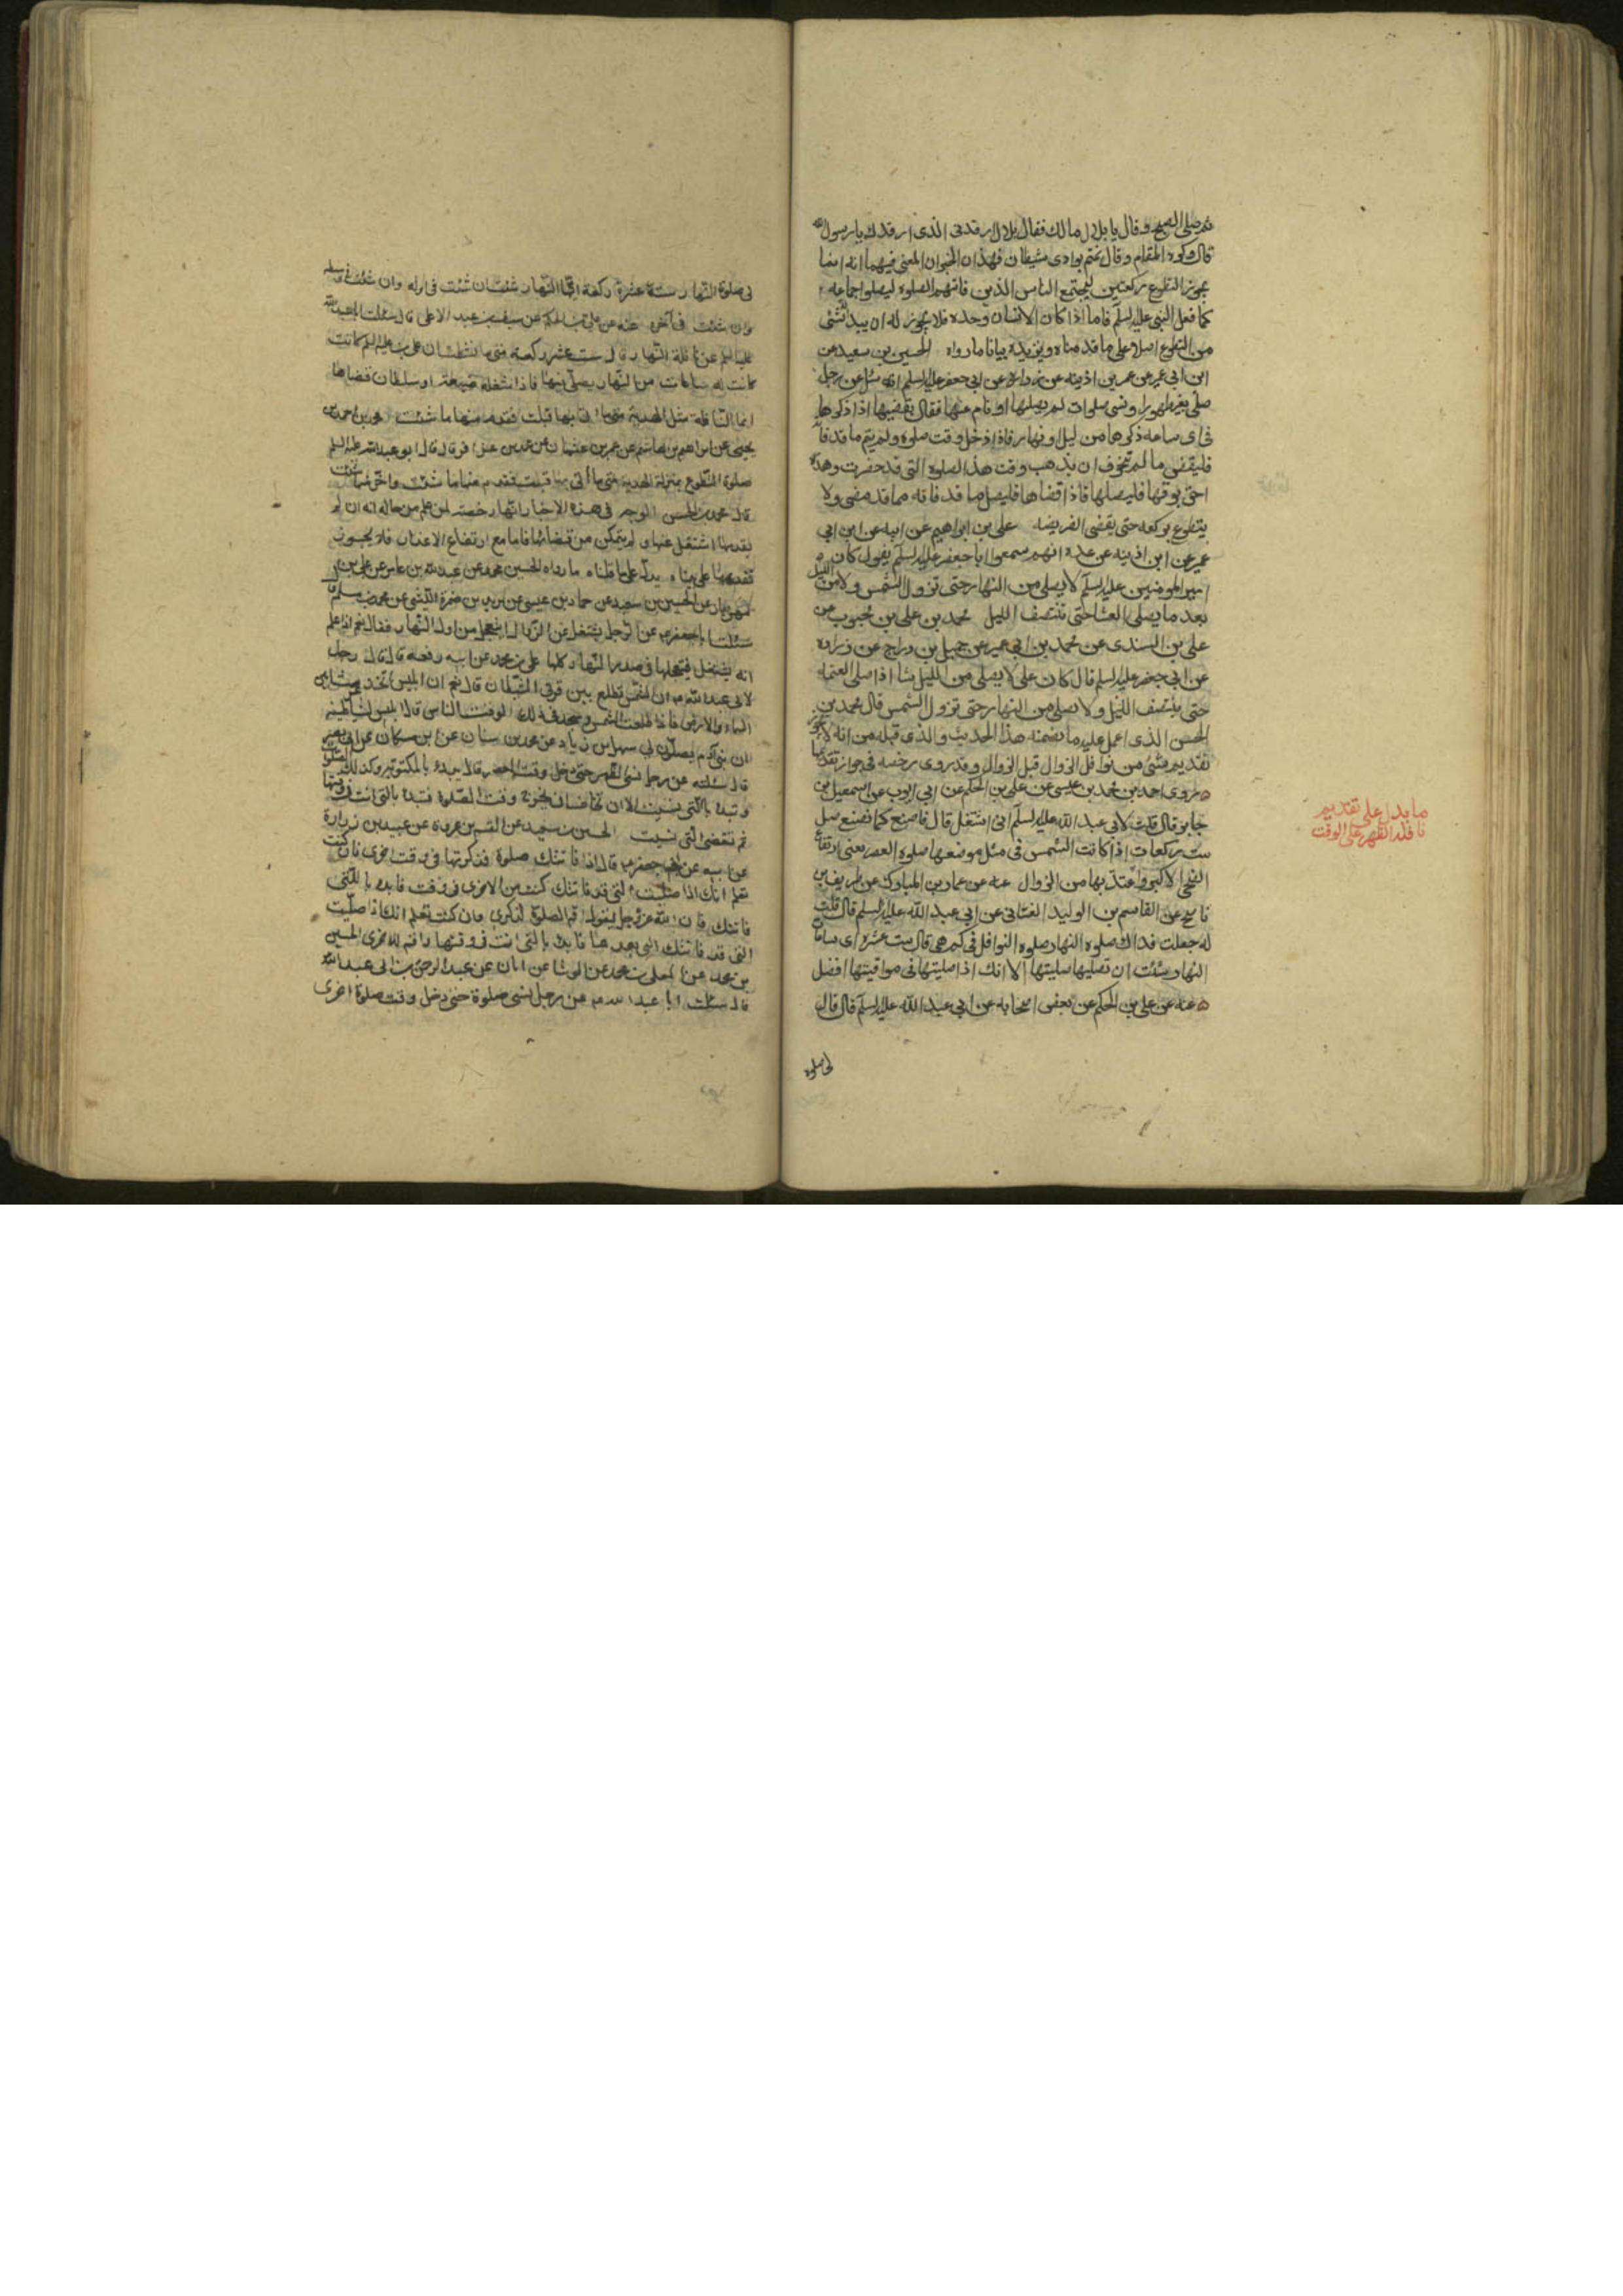 ثم صلى الصبح وقال يا بلال مالك فقال بلال ارقدنى الذى ارقدك يا رسول الله
قال وكره المقام وقال نمتم بوادى شيطان فهذان الخبران المعنى فيهما انه انما
يجوز التطوع بركعتين ليجتمع الناس الذين فاتتهم الصلوة ليصلوا جماعه
كما فعل النبى عليه السلم فاما اذا كان الانسان وحده فلا يجوز له ان يبدأ بشئ
من التطوع اصلا على ما قدمناه ويزيده بيانا ما رواه الحسين بن سعيد عن
ابن ابى عمير عن عمر بن اذينه عن زراره عن ابى جعفر عليه السلم انه سئل عن رجل
صلى بغير طهور او نسى صلوات لم يصلها او نام عنها فقال يقضيها اذا ذكرها
فى اى ساعه ذكرها من ليل او نهار فاذا دخل وقت صلوه ولم يتم ما قد فاته
فليقض ما لم يتخوف ان يذهب وقت هذه الصلوه التى قد حضرت وهذه
احق بوقتها فليصلها فاذا قضاها فليصل ما قد فاته مما قد مضى ولا
يتطوع بركعه حتى يقضى الفريضه على بن ابراهيم عن ابيه عن ابن ابى
عمير عن ابن اذينه عن عده انهم سمعوا ابا جعفر عليه السلم يقول كان
امير المومنين عليه السلم لا يصلى من النهار حتى تزول الشمس ولا من الليل
بعد ما يصلى العشا حتى تنتصف الليل محمد بن على بن محبوب عن
على بن السندى عن محمد بن ابى عمير عن جميل بن دراج عن زراره
عن ابى جعفر عليه السلم قال كان على لا يصلى من الليل شا اذا صلى العتمه
حتى ينتصف الليل ولا يصلى من النهار حتى تزول الشمس قال محمد بن
الحسن الذى اعمل عليه ما تضمنه هذا الحديث والذى قبله من انه لا يجوز
تقديم شئ من نوافل الزوال قبل الزوال وقد روى رخصه فى جواز تقديمها
روى احمد بن محمد بن عيسى عن على بن الحكم عن ابى ايوب عن اسمعيل بن
جابر قال قلت لابى عبد الله عليه السلم انى اشتغل قال فاصنع كما نصنع صل
ست ركعات اذا كانت الشمس فى مثل موضعها صلوه العصر يعنى ارتفاع
الضحى الاكبر واعتد بها من الزوال عنه عن عمار بن المبارك عن ظريف بن
ناصح عن القاسم بن الوليد الغسانى عن ابى عبد الله عليه السلم قال قلت
له جعلت فداك صلوه النهار صلوه النوافل فى كم هى قال ست عشره اى ساعات
النهار شئت ان تصليها صليتها الا انك اذا صليتها فى مواقيتها افضل
عنه عن على بن الحكم عن بعض اصحابه عن ابى عبد الله عليه السلم قال قال
لى صلوه
ما يدل على تقديم
نافله الظهر على الوقت
لى صلوة النهار ستة عشرة ركعة اىّ النهار شئت ان شئت فى اوله وان شئت فى وسطه
وان شئت فى آخره عنه عن على بن الحكم عن سيف بن عبد الاعلى قال سئلت ابا عبد الله
عليه السلم عن نافلة النهار قال ست عشر ركعة متى ما نشطت ان على بن عليه السلم كانت
كانت له ساعات من النهار يصلى فيها فاذا شغله ضيعته او سلطان قضاها
انما النافلة مثل الهدية متى ما اتى بها قبلت فقدم منها ما شئت محمد بن احمد بن
يحيى عن ابراهيم بن هاشم عن عمر بن عثمان عن محمد بن عذافر قال قال ابو عبد الله عليه السلم
صلوة التطوع بمنزلة الهدية متى ما أُتى بها قبلت فقدم منها ما شئت واخّر منها ما شئت
قال محمد بن الحسن الوجه فى هذه الاخبار انها رخصة لمن علم من حاله انه ان لم
يقدمها اشتغل عنها ولم يتمكن من قضائها فاما مع ارتفاع الاعذار فلا يجوز
تقديمها على بناء يدل على ما قلناه ما رواه الحسين محمد عن عبد الله بن عامر عن على بن
مهزيار عن الحسين بن سعيد عن حماد بن عيسى عن بريد بن ضمرة الليثى عن محمد بن مسلم قال
سئلت ابا جعفر ع عن الرجل يشتغل عن الزوال ايعجل من اول النهار فقال نعم اذا علم
انه يشتغل فيعجلها فى صدر النهار كلها على بن محمد عن ابيه رفعه قال قال رجل
لابى عبد الله ع ان الشمس تطلع بين قرنى الشيطان قال نعم ان ابليس اتخذ عرشا بين
السماء والارض فاذا طلعت الشمس وسجد فى ذلك الوقت الناس قال ابليس لشياطينه
ان بنى آدم يصلون لى سهل بن زياد عن محمد بن سنان عن ابن مسكان عن ابى بصير
قال سئلته عن رجل نسى الظهر حتى دخل وقت العصر قال يبدء بالمكتوبة وكذلك الصلوات
وتبدء بالتى نسيت الا ان تخاف ان يخرج وقت الصلوة فتبدء بالتى انت فى وقتها
ثم تقضى التى نسيت الحسين بن سعيد عن القسم بن عروة عن عبيد بن زرارة
عن ابيه عن ابى جعفر ع قال اذا فاتتك صلوة فذكرتها فى وقت اخرى فان كنت
تعلم انك اذا صليت التى قد فاتتك كنت من الاخرى فى وقت فابدء بالتى
فاتتك فان الله عز وجل يقول اقم الصلوة لذكرى وان كنت تعلم انك اذا صليت
التى قد فاتتك التى بعدها فابدء بالتى انت فى وقتها واقم للاخرى الحسين
بن محمد عن المعلى بن محمد عن الوشا عن ابان عن عبد الرحمن بن ابى عبد الله
قال سئلت ابا عبد الله ع عن رجل نسى صلوة حتى دخل وقت صلوة اخرى